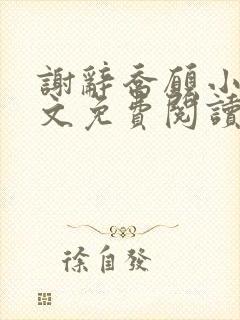 謝辭喬願小
文免費閱讀
徐自發